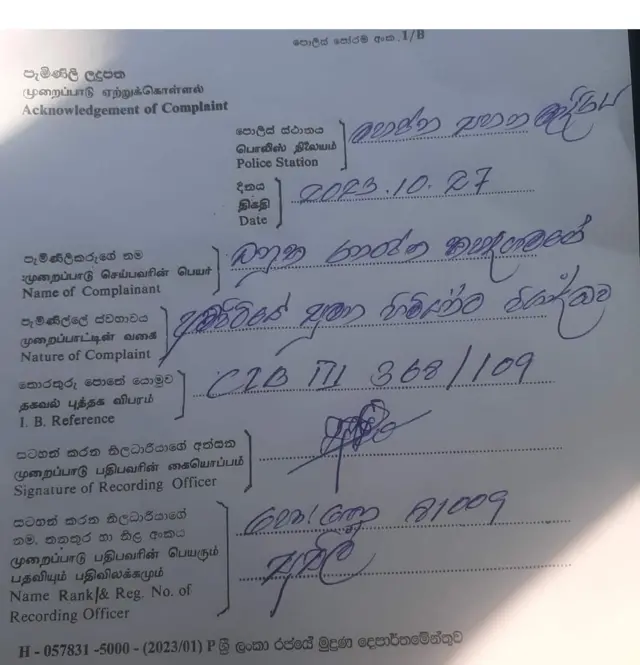 පොලිස් පෝරම අංක. 1/B
පැමිණිලි ලදුපත
முறைப்பாடு ஏற்றுக்கொள்ளல்
Acknowledgement of Complaint
පොලිස් ස්ථානය
பொலிஸ் நிலையம்
Police Station
දිනය
திகதி
Date
2023.10.27
පැමිණිලිකරුගේ නම
முறைப்பாடு செய்பவரின் பெயர்
Name of Complainant
පැමිණිල්ලේ ස්වභාවය
முறைப்பாட்டின் வகை
Nature of Complaint
තොරතුරු පොතේ යොමුව
தகவல் புத்தக விபரம்
I. B. Reference
CIB III 368/109
සටහන් කරන නිලධාරියාගේ අත්සන
முறைப்பாடு பதிபவரின் கையொப்பம்
Signature of Recording Officer
සටහන් කරන නිලධාරියාගේ
නම, තනතුර හා නිළ අංකය
முறைப்பாடு பதிபவரின் பெயரும்
பதவியும் பதிவிலக்கமும்
Name Rank & Reg. No. of
Recording Officer
81009
H - 057831 -5000 - (2023/01) P ශ්‍රී ලංකා රජයේ මුද්‍රණ දෙපාර්තමේන්තුව